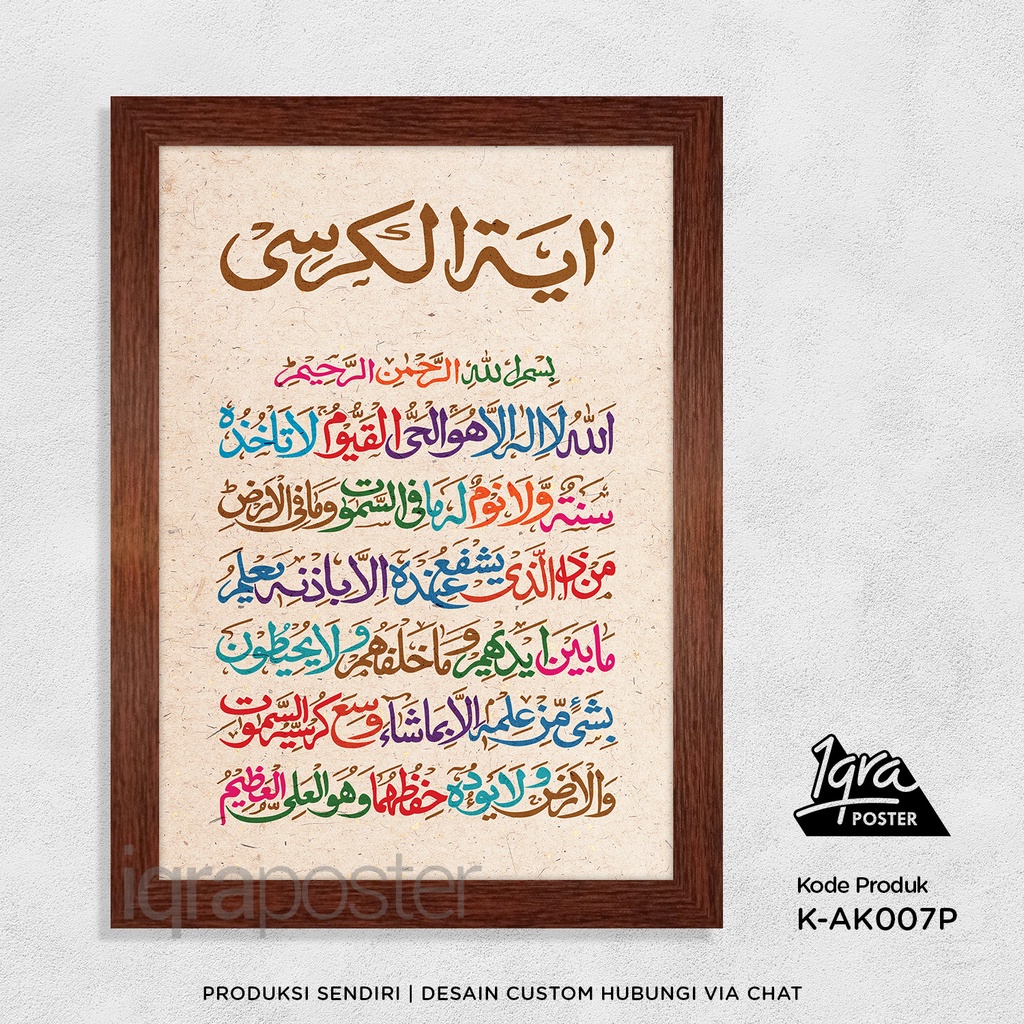 اية الكرسى
بِسْمِ اللهِ الرَّحْمٰنِ الرَّحِيْمِ
اَللهُ لَا اِلٰهَ اِلَّا هُوَ الْحَىُّ الْقَيُّوْمُ لَا تَأْخُذُهٗ
سِنَةٌ وَّلَا نَوْمٌ لَهٗ مَا فِى السَّمٰوٰتِ وَمَا فِى الْاَرْضِ
مَنْ ذَا الَّذِىْ يَشْفَعُ عِنْدَهٗ اِلَّا بِاِذْنِهٖ يَعْلَمُ
مَا بَيْنَ اَيْدِيْهِمْ وَمَا خَلْفَهُمْ وَلَا يُحِيْطُوْنَ
بِشَىْءٍ مِّنْ عِلْمِهٖ اِلَّا بِمَا شَاءَ وَسِعَ كُرْسِيُّهُ السَّمٰوٰتِ
وَالْاَرْضَ وَلَا يَـُٔوْدُهٗ حِفْظُهُمَا وَهُوَ الْعَلِىُّ الْعَظِيْمُ
iqraposter
Iqra
POSTER
Kode Produk
K-AK007P
PRODUKSI SENDIRI | DESAIN CUSTOM HUBUNGI VIA CHAT